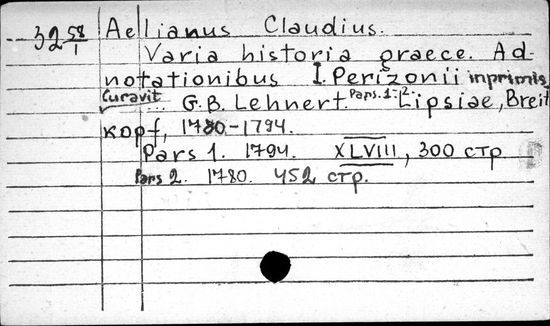 32 58/1 Aelianus Claudius.
Varia historia graece. Ad-
notationibus I. Perizonii inprimis
Curavit G.B. Lehnert. Pars. 1-2. Lipsiae, Breit
kopf, 1780-1794.
Pars 1. 1794. XLVIII, 300 стр
Pars 2. 1780. 452 стр.